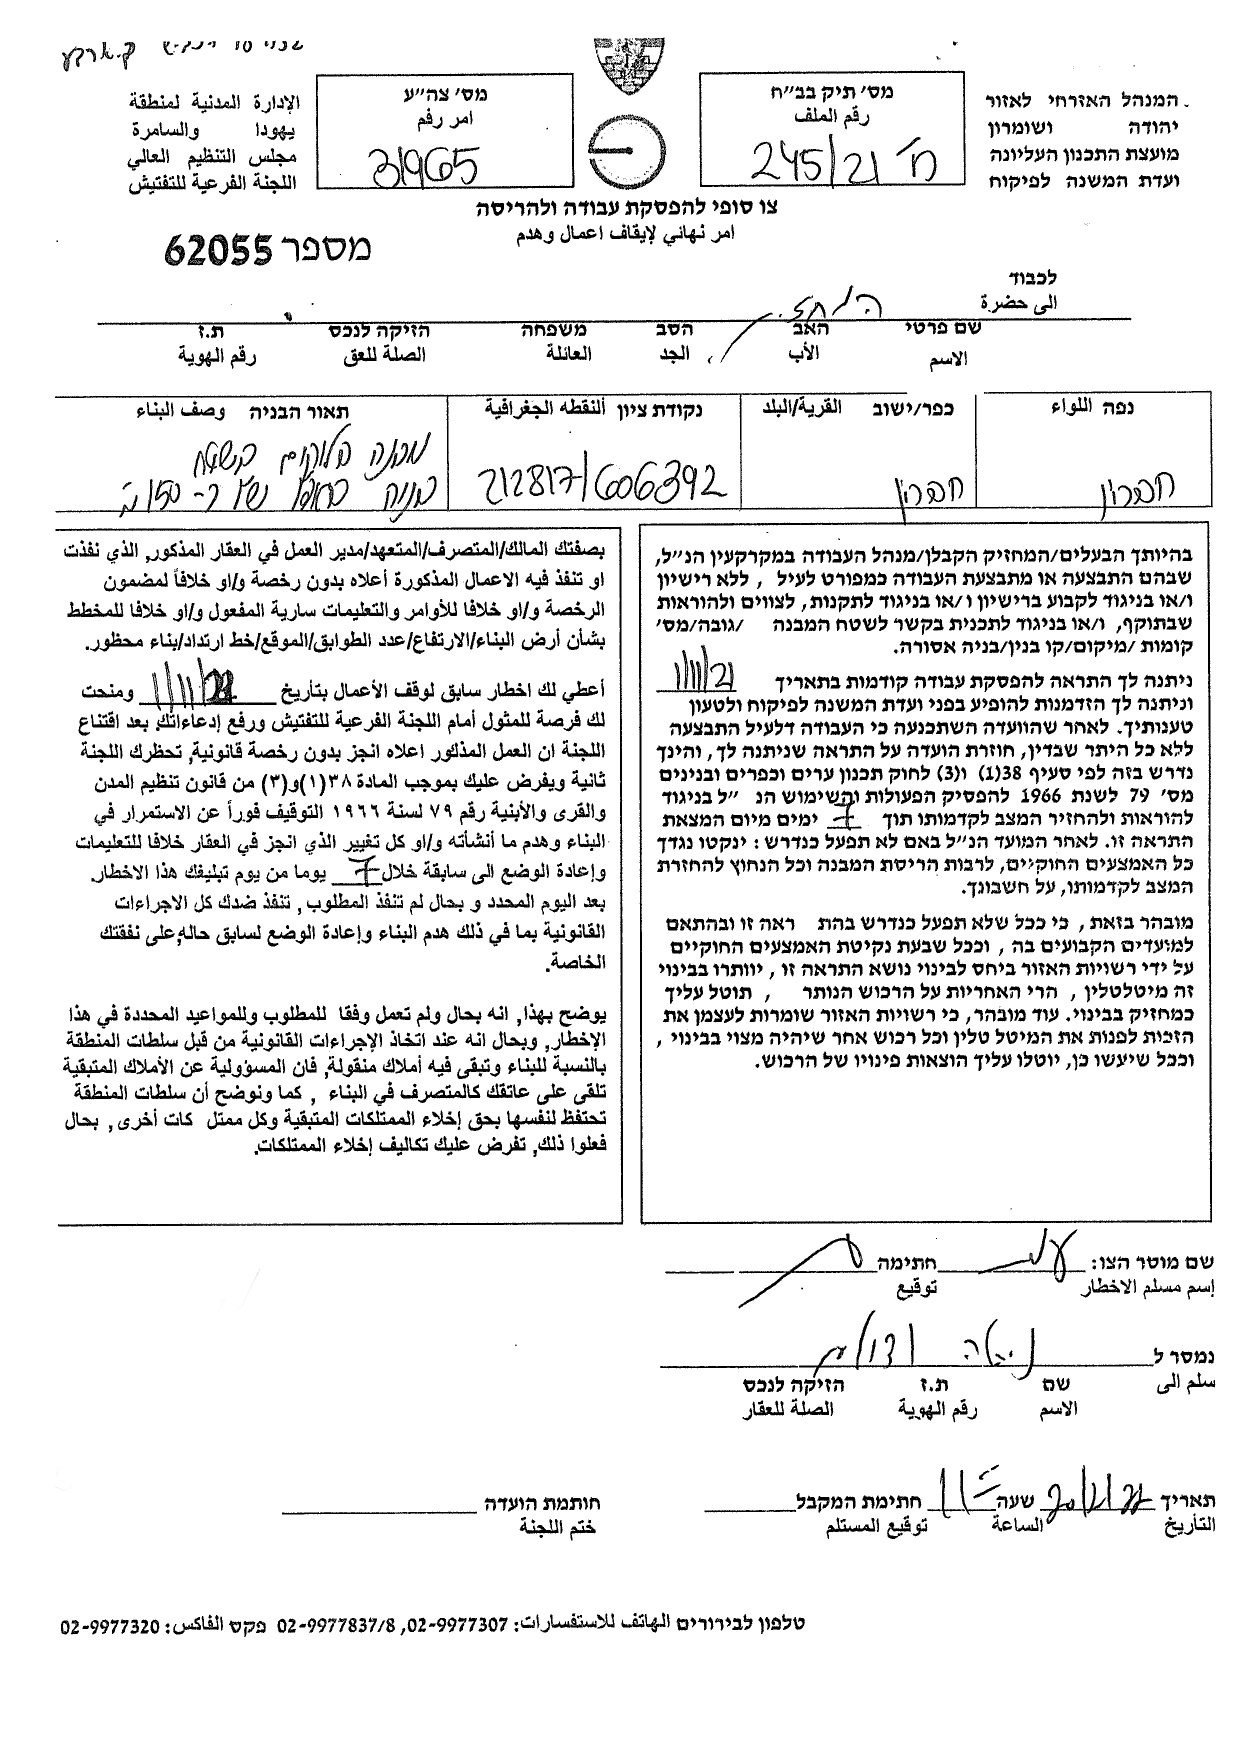 המנהל האזרחי לאזור
יהודה ושומרון
מועצת התכנון העליונה
ועדת המשנה לפיקוח
מס׳ תיק בב״ח
رقم الملف
ח 245/21
מס׳ צה״ע
امر رقم
31965
الإدارة المدنية لمنطقة
يهودا والسامرة
مجلس التنظيم العالي
اللجنة الفرعية للتفتيش
צו סופי להפסקת עבודה ולהריסה
امر نهائي لإيقاف اعمال وهدم
מספר 62055
לכבוד
الى حضرة
שם פרטי האב הסב משפחה הזיקה לנכס ת.ז
الاسم الأب الجد العائلة الصلة للعق رقم الهوية
נפה اللواء
חברון
כפר/ישוב القرية/البلد
חברון
נקודת ציון ألنقطه الجغرافية
212817/606392
תאור הבניה وصف البناء
מבנה בלוקים בשטח
בניה של כ- 150 מ״ר
בהיותך הבעלים/המחזיק הקבלן/מנהל העבודה במקרקעין הנ״ל,
שבהם התבצעה או מתבצעת העבודה כמפורט לעיל , ללא רישיון
ו/או בניגוד לקבוע ברישיון ו/או בניגוד לתקנות, לצווים ולהוראות
שבתוקף, ו/או בניגוד לתכנית בקשר לשטח המבנה /גובה/מס׳
קומות /מיקום/קו בנין/בניה אסורה.
ניתנה לך התראה להפסקת עבודה קודמות בתאריך 1/11/21
וניתנה לך הזדמנות להופיע בפני ועדת המשנה לפיקוח ולטעון
טענותיך. לאחר שהוועדה השתכנעה כי העבודה דלעיל התבצעה
ללא כל היתר שבדין, חוזרת הועדה על התראה שניתנה לך, והינך
נדרש בזה לפי סעיף 38(1) ו(3) לחוק תכנון ערים וכפרים ובנינים
מס׳ 79 לשנת 1966 להפסיק הפעולות והשימוש הנ ״ל בניגוד
להוראות ולהחזיר המצב לקדמותו תוך 7 ימים מיום המצאת
התראה זו. לאחר המועד הנ״ל באם לא תפעל כנדרש : ינקטו נגדך
כל האמצעים החוקיים, לרבות הריסת המבנה וכל הנחיץ להחזרת
המצב לקדמותו, על חשבונך.
מובהר בזאת , כי ככל שלא תפעל כנדרש בהת ראה זו ובהתאם
למועדים הקבועים בה , וככל שבעת נקיטת האמצעים החוקיים
על ידי רשויות האזור ביחס לבינוי נושא התראה זו , יוותרו בבינוי
זה מיטלטלין , הרי האחריות על הרכוש הנותר , תוטל עליך
כמחזיק בבינוי. עוד מובהר, כי רשויות האזור שומרות לעצמן את
הזכות לפנות את המיטל טלין וכל רכוש אחר שיהיה מצוי בבינוי ,
וככל שיעשו כן, יוטלו עליך הוצאות פינויו של הרכוש.
بصفتك المالك/المتصرف/المتعهد/مدير العمل في العقار المذكور, الذي نفذت
او تنفذ فيه الاعمال المذكورة أعلاه بدون رخصة و/او خلافاً لمضمون
الرخصة و/او خلافا للأوامر والتعليمات سارية المفعول و/او خلافا للمخطط
بشأن أرض البناء/الارتفاع/عدد الطوابق/الموقع/خط ارتداد/بناء محظور.
أعطي لك اخطار سابق لوقف الأعمال بتأريخ ومنحت
لك فرصة للمثول أمام اللجنة الفرعية للتفتيش ورفع إدعاءاتك. بعد اقتناع
اللجنة ان العمل المذكور اعلاه انجز بدون رخصة قانونية, تحظرك اللجنة
ثانية ويفرض عليك بموجب المادة ٣٨(١)و(٣) من قانون تنظيم المدن
والقرى والأبنية رقم ٧٩ لسنة ١٩٦٦ التوقيف فوراً عن الاستمرار في
البناء وهدم ما أنشأته و/او كل تغيير الذي انجز في العقار خلافا للتعليمات
وإعادة الوضع الى سابقة خلال 7 يوما من يوم تبليغك هذا الاخطار.
بعد اليوم المحدد و بحال لم تنفذ المطلوب, تنفذ ضدك كل الاجراءات
القانونية بما في ذلك هدم البناء وإعادة الوضع لسابق حاله,على نفقتك
الخاصة.
يوضح بهذا, انه بحال ولم تعمل وفقا للمطلوب وللمواعيد المحددة في هذا
الإخطار, وبحال انه عند اتخاذ الإجراءات القانونية من قبل سلطات المنطقة
بالنسبة للبناء وتبقى فيه أملاك منقولة, فان المسؤولية عن الأملاك المتبقية
تلقى على عاتقك كالمتصرف في البناء , كما ونوضح أن سلطات المنطقة
تحتفظ لنفسها بحق إخلاء الممتلكات المتبقية وكل ممتل كات أخرى, بحال
فعلوا ذلك, تفرض عليك تكاليف إخلاء الممتلكات.
שם מוסר הצו: חתימה
إسم مسلم الاخطار توقيع
נמסר ל
سلم الى
שם ת.ז הזיקה לנכס
الاسم رقم الهوية الصلة للعقار
תאריך 20/2/22 שעה חתימת המקבל
التأريخ الساعة توقيع المستلم
חותמת הועדה
ختم اللجنة
טלפון לבירורים الهاتف للاستفسارات: 02-9977307, 02-9977837/8 פקס الفاكس: 02-9977320